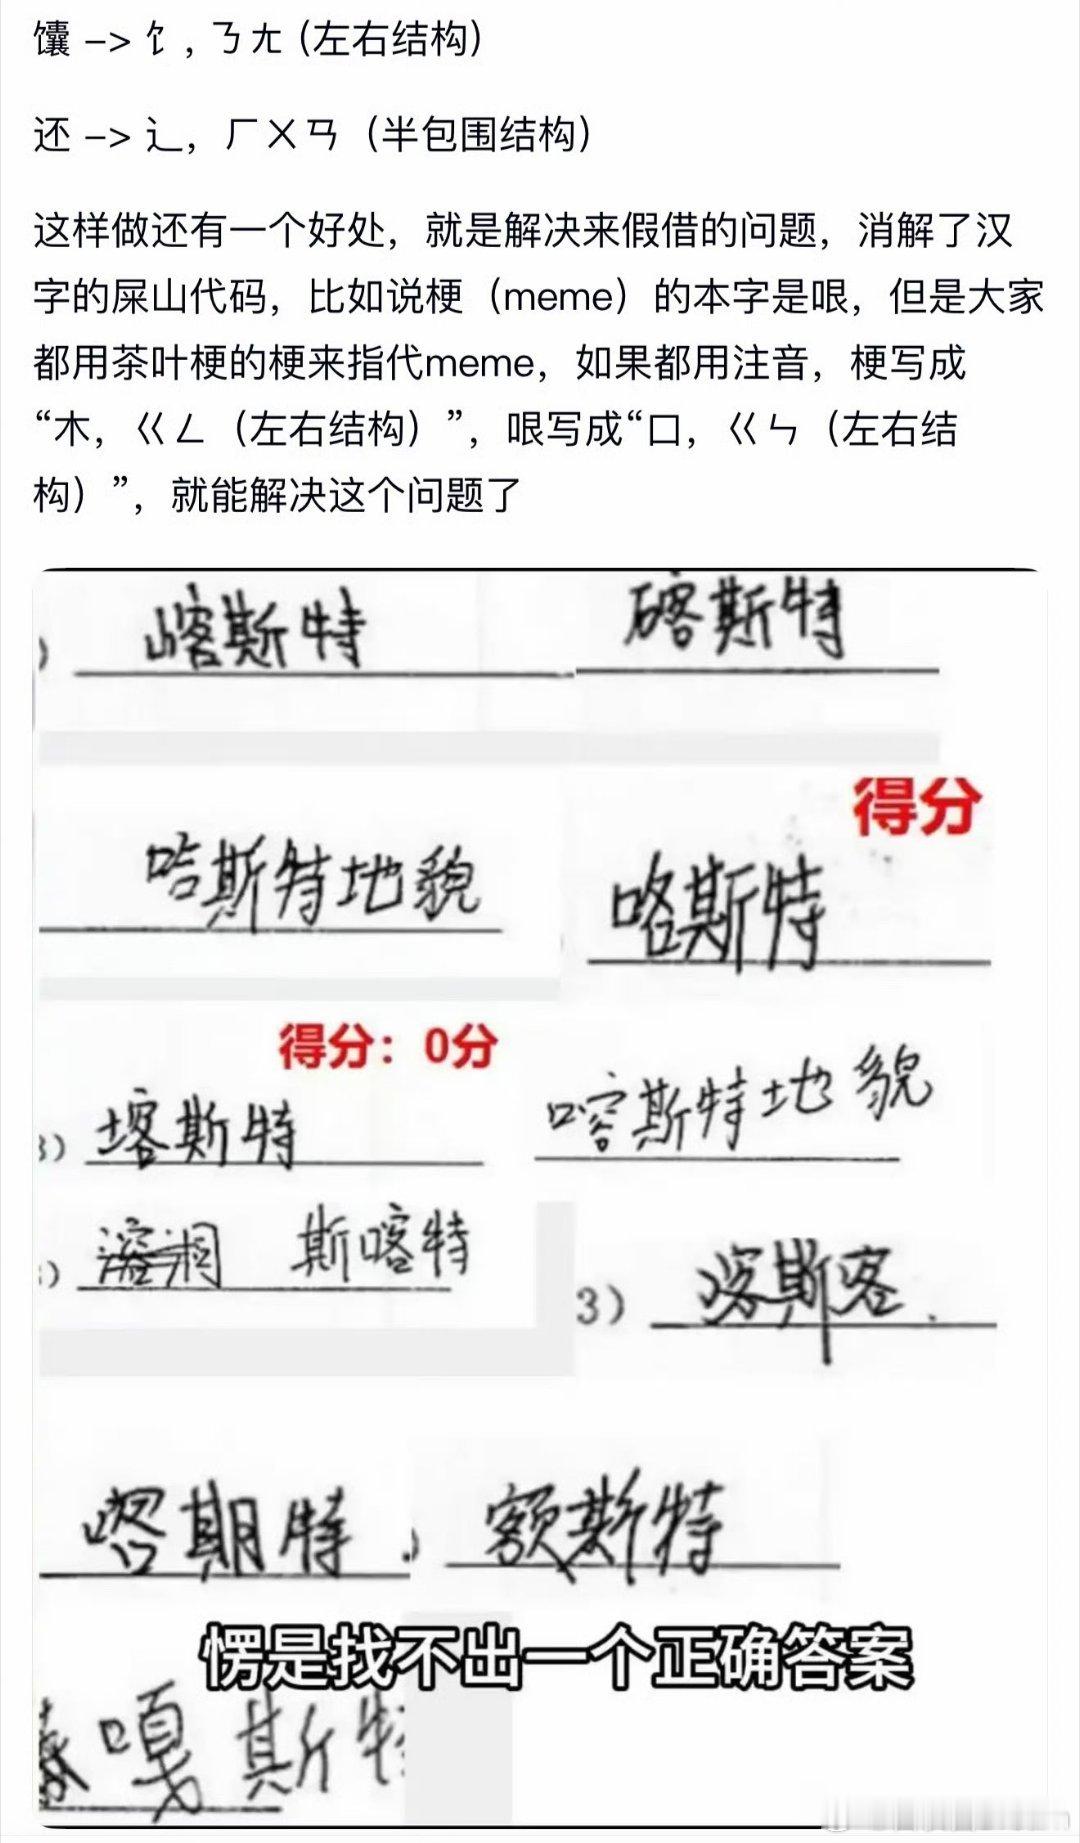 馕 –> 饣, ㄋㄤ (左右结构)
还 –> 辶，ㄏㄨㄢ（半包围结构）
这样做还有一个好处，就是解决来假借的问题，消解了汉
字的屎山代码，比如说梗（meme）的本字是哏，但是大家
都用茶叶梗的梗来指代meme，如果都用注音，梗写成
“木，ㄍㄥ（左右结构）”，哏写成“口，ㄍㄣ（左右结
构）”，就能解决这个问题了
斯特
斯特
得分
哈斯特地貌
咯斯特
得分：0分
3）
斯特
喀斯特地貌
溶洞 斯喀特
3）
斯客
喀期特
额斯特
愣是找不出一个正确答案
嘎斯特